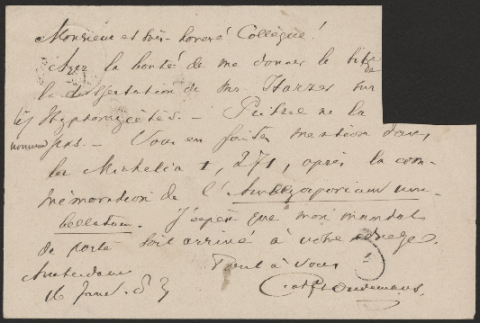 Monsieur et très honoré Collègue!
Ayez la bonté de me donner le titre de
la dissertation de Mr Harzer sur
les Hyphomycètes. — Pritzel ne la
nomme pas. — Vous en faites mention dans
la Michelia I, 271, après la com-
mémoration de l'Amblyosporium um-
bellatum. J'espère que mon mandat
de poste soit arrivé à votre adresse.
Tout à Vous
Amsterdam
16 Janv. 83
Oudemans.